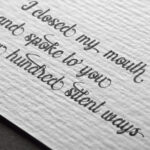 I closed my mouth
and spoke to you
hundred silent ways